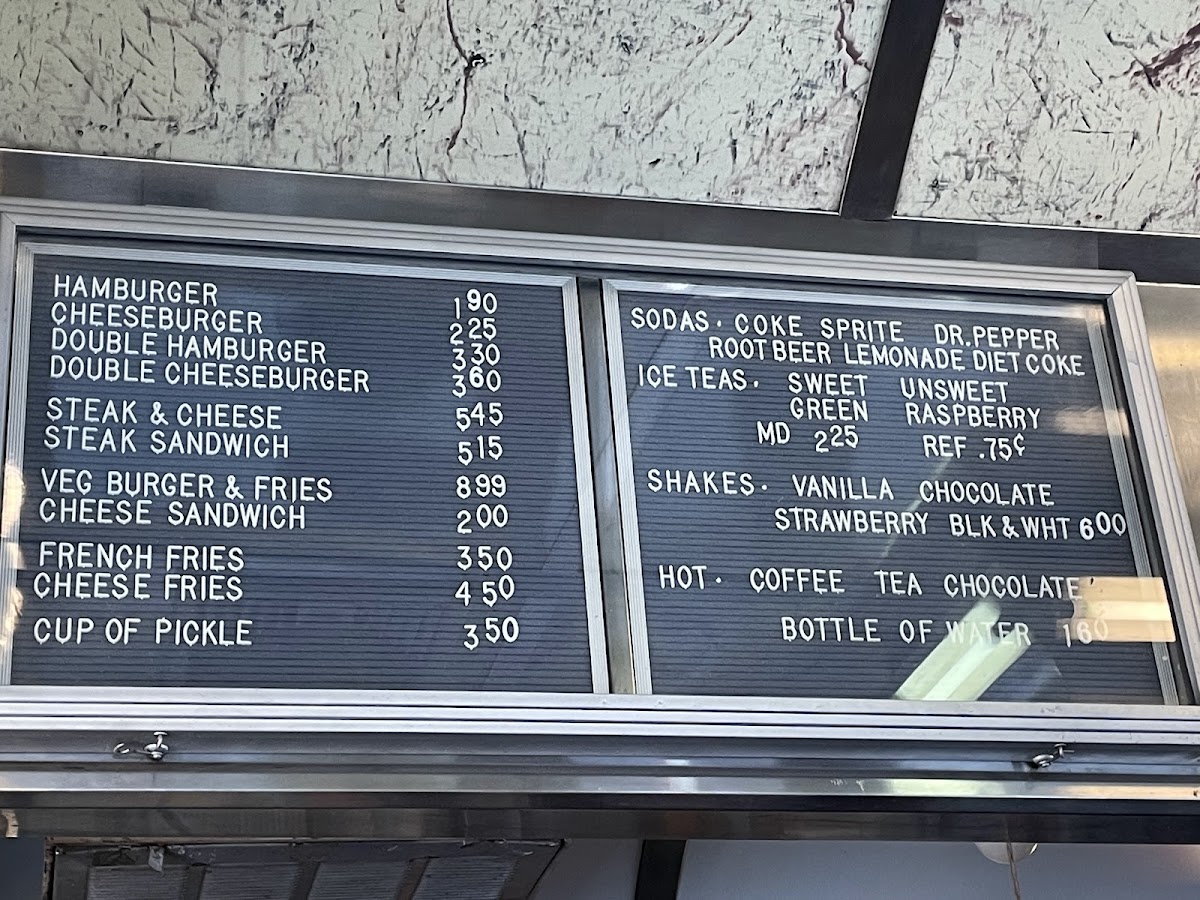 HAMBURGER 190
CHEESEBURGER 225
DOUBLE HAMBURGER 330
DOUBLE CHEESEBURGER 360
STEAK & CHEESE 545
STEAK SANDWICH 515
VEG BURGER & FRIES 899
CHEESE SANDWICH 200
FRENCH FRIES 350
CHEESE FRIES 450
CUP OF PICKLE 350
SODAS · COKE SPRITE DR.PEPPER
ROOT BEER LEMONADE DIET COKE
ICE TEAS · SWEET UNSWEET
GREEN RASPBERRY
MD 225 REF .75¢
SHAKES · VANILLA CHOCOLATE
STRAWBERRY BLK & WHT 600
HOT · COFFEE TEA CHOCOLATE
BOTTLE OF WATER 160